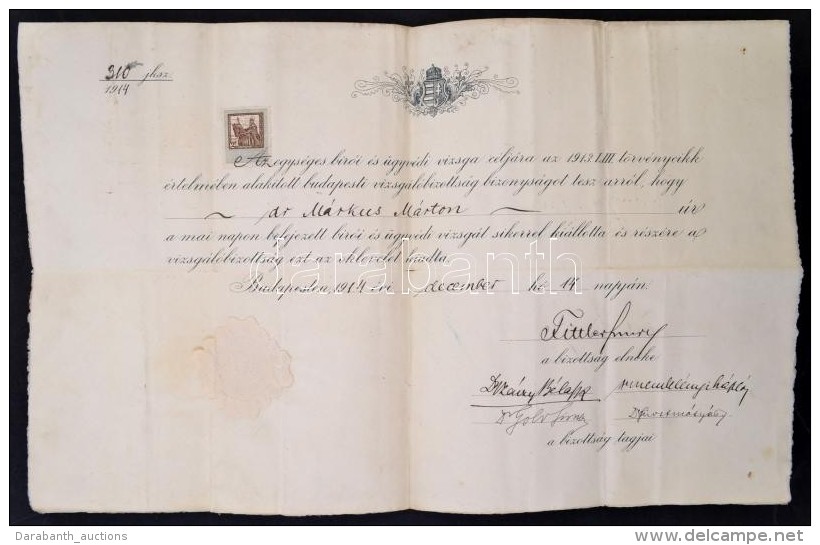 310 jksz.
1914
Az egységes birói és ügyvédi vizsga céljára az 1912. LIII. törvénycikk
értelmében alakitott budapesti vizsgálóbizottság bizonyságot tesz arról, hogy
~ dr Márkus Márton ~ úr
a mai napon befejezett birói és ügyvédi vizsgát sikerrel kiállotta és részére a
vizsgálóbizottság ezt az oklevelet kiadta.
Budapesten, 1914 évi december hó 14 napján.
Fittler Imre
a bizottság elnöke
Béla
a bizottság tagjai
darabanth
Darabanth_auctions
delcampe.net